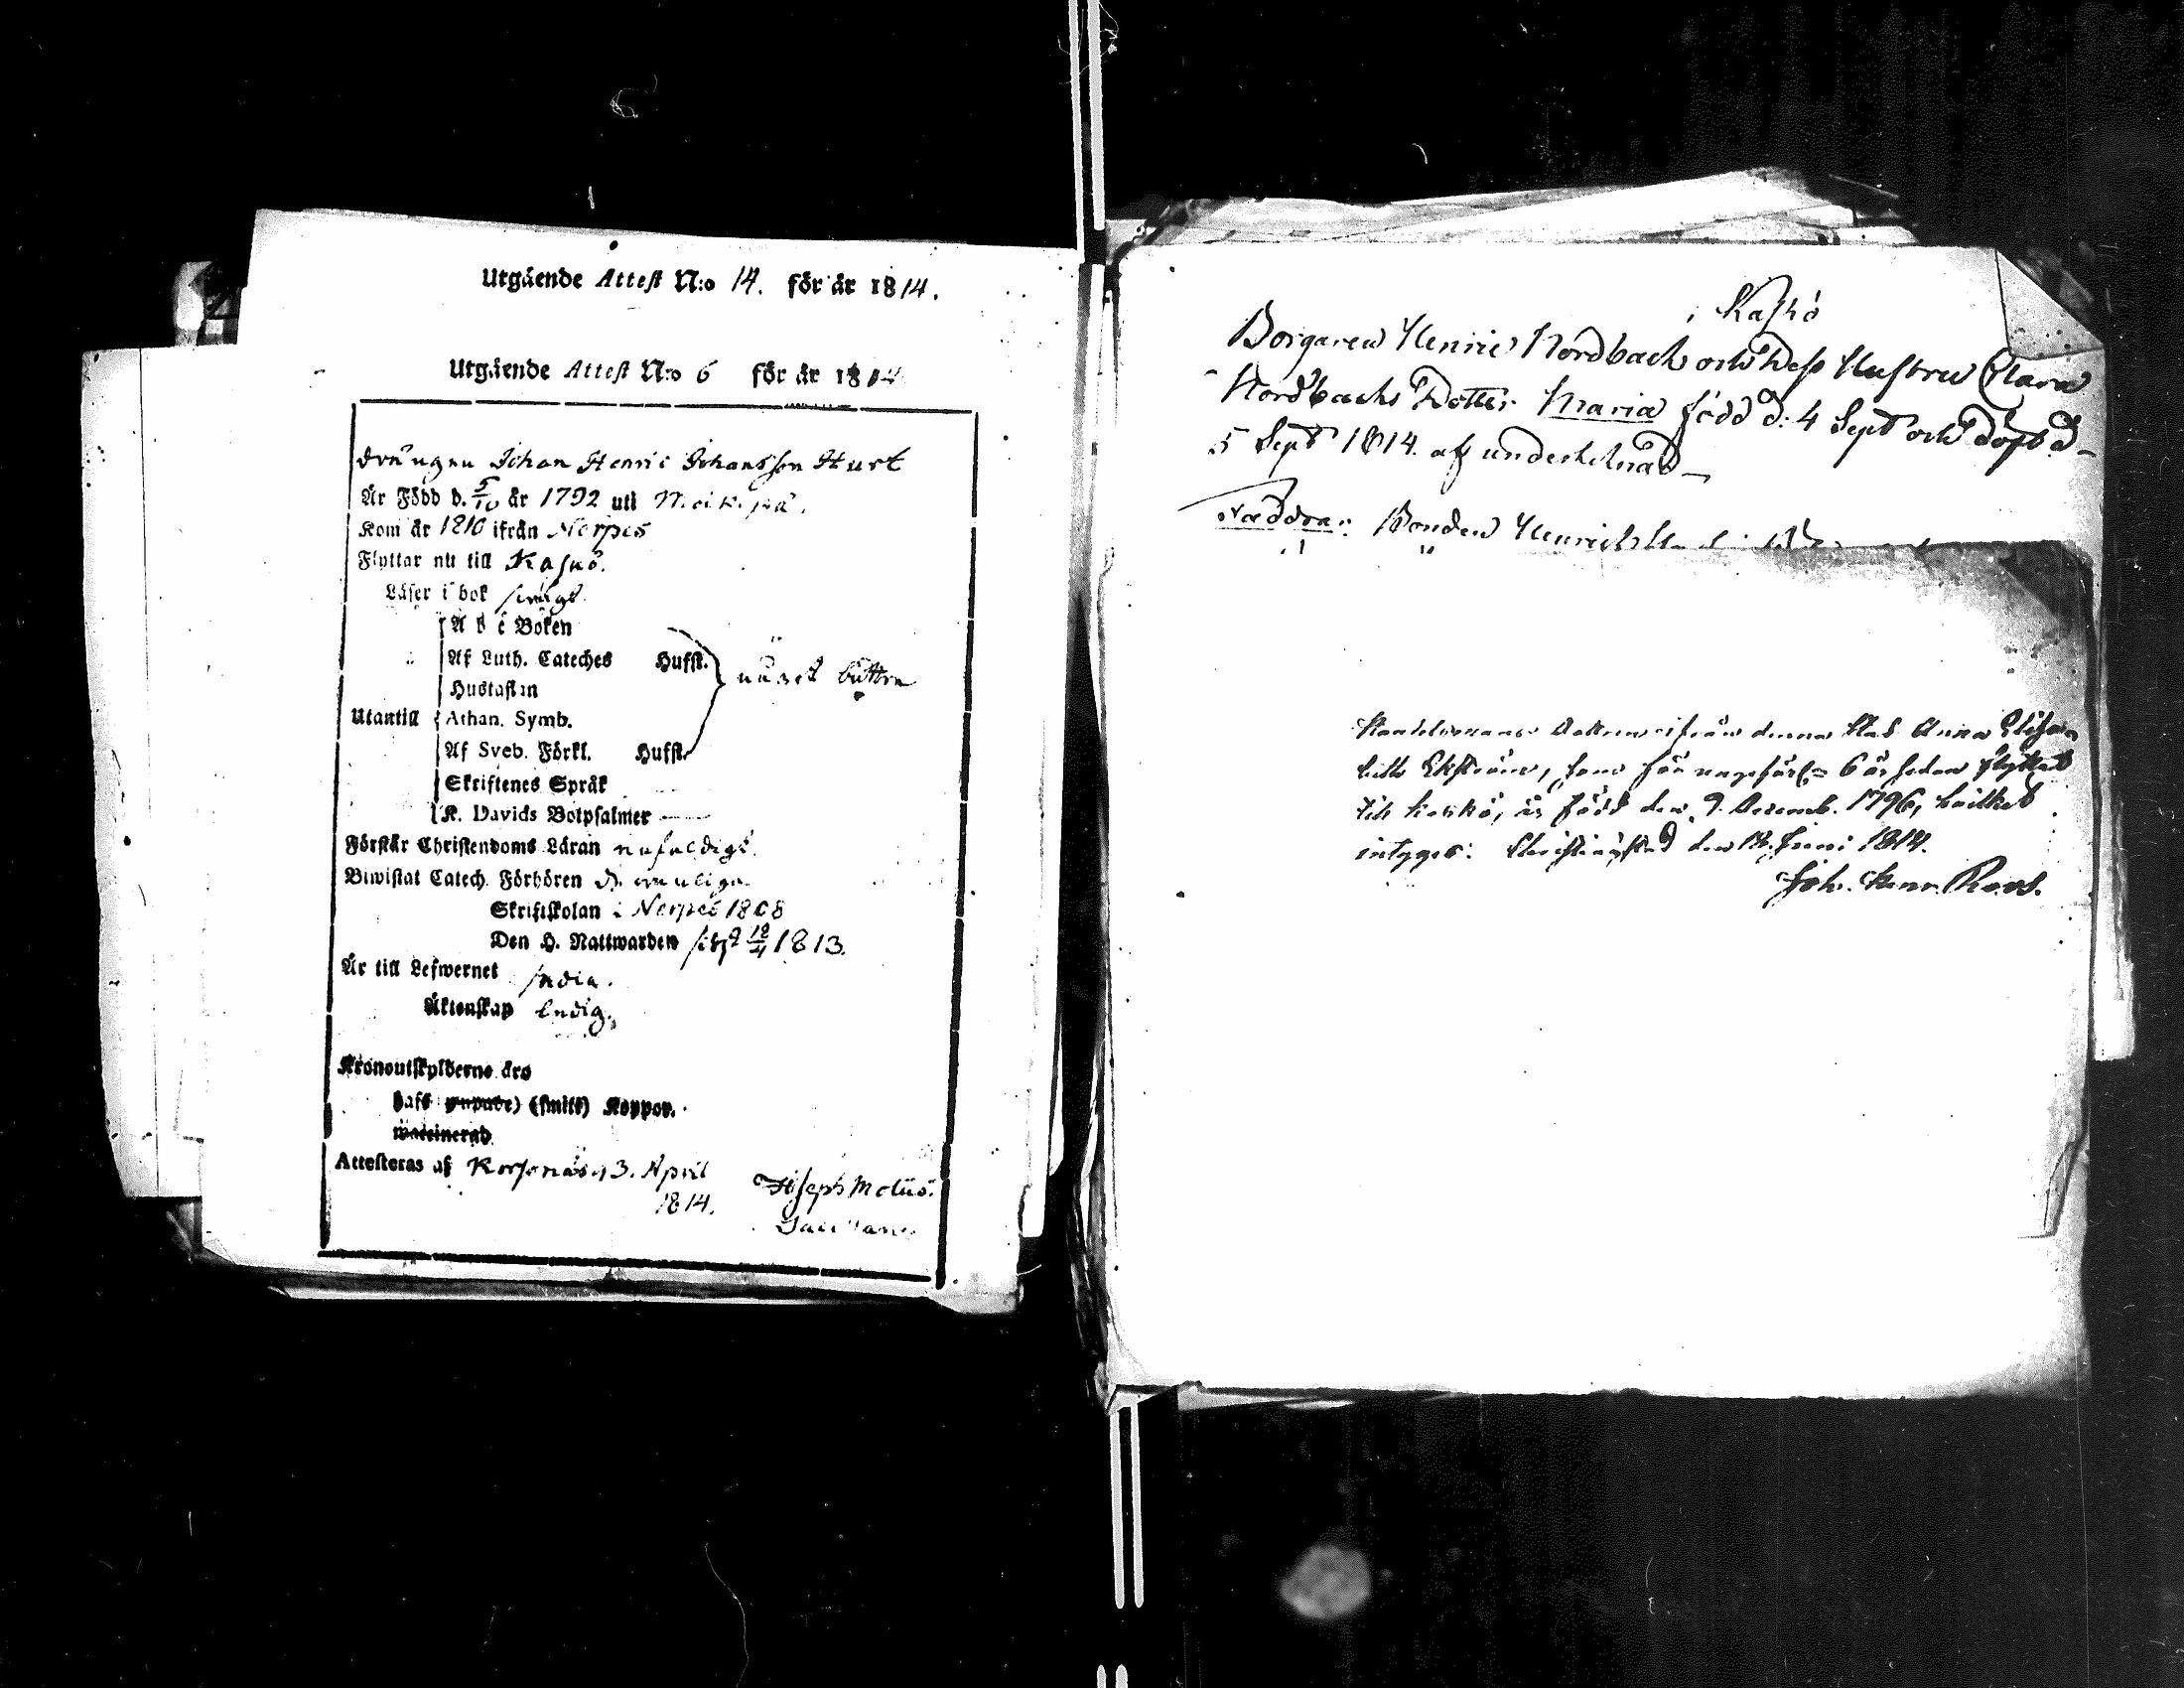 Utgående Attest N:o 14. för år 1814.
Utgående Attest N:o 6 för år 1814
drängen Johan Henric Johansson Hurt
Är Född d. 5/10 år 1792 uti
Kom år 1810 ifrån Nerpes
Flyttar nu till Kaskö.
Läser i bok
A b c Boken
Af Luth. Cateches Hufst.
något bättre
Hustaflan
Utantill
Athan. Symb.
Af Sveb. Förkl. Hufst.
Skriftenes Språk
K. Davids Botpsalmer
Förstår Christendoms Läran
Biwistat Catech. Förhören
Skriftskolan i Nerpes 1808
Den H. Nattwarden sist d 18/4 1813.
Är till Lefwernet
Äktenskap ledig.
Kronoutskylderne äro
haft (smitt) Koppor.
waccinerad
Attesteras af Korsnäs 13. April
1814.
Joseph
i Kaskö
Borgaren Henric Nordbäck och Dess Hustru Clara
Nordbäcks Dotter Maria född d: 4 Sept och döpt d
5 Sept 1814. af underteknad
Faddrar: Bonden Henrich
Handelsmans Dottren ifrån denna Stad Anna Elisa-
beth Ekström, som för ungefärl: 6 år sedan flyttat
till Kaskö, är född den 9. Decemb. 1796, hvilket
intygas: Christinæstad den 18. Juni 1814.
Joh. Henr. Roos.